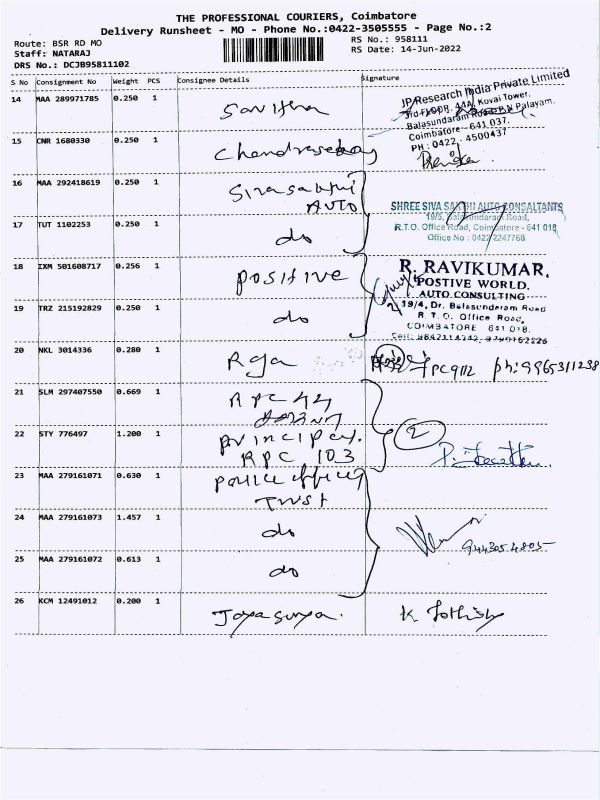 THE PROFESSIONAL COURIERS, Coimbatore
Delivery Runsheet - MO - Phone No.:0422-3505555 - Page No.:2
Route: BSR RD MO
RS No.: 958111
Staff: NATARAJ
RS Date: 14-Jun-2022
DRS No.: DCJB95811102
S No Consignment No Weight PCS Consignee Details Signature
14 MAA 289971785 0.250 1 Savitha
JP Research India Private Limited
Kovai Tower,
Balasundaram Palayam,
Coimbatore - 641 037.
PH : 0422 - 4500437
15 CNR 1680330 0.250 1
16 MAA 292418619 0.250 1 Sivasakthi
AUTO
SHREE SIVA SAKTHI AUTO CONSALTANTS
19/5, Balasundaram Road,
R.T.O. Office Road, Coimbatore - 641 018
Office No : 0422 2247768
17 TUT 1102253 0.250 1 do
18 IXM 501608717 0.256 1 positive
R. RAVIKUMAR,
POSTIVE WORLD.
AUTO CONSULTING
19/4, Dr. Balasundaram Road
R. T. O. Office Road,
COIMBATORE 641 018.
19 TRZ 215192829 0.250 1 do
20 NKL 3014336 0.280 1 Raja PC9112 ph: 9965311238
21 SLM 297407550 0.669 1 RPC 44
22 STY 776497 1.200 1 principal.
RPC 103
2
23 MAA 279161071 0.630 1 police officer
Trust
24 MAA 279161073 1.457 1 do
9443054805
25 MAA 279161072 0.613 1 do
26 KCM 12491012 0.200 1 Jayasurya.